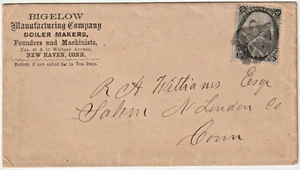 BIGELOW
Manufacturing Company
BOILER MAKERS,
Founders and Machinists,
Whitney Avenue,
NEW HAVEN, CONN.
Return if not called for in Ten Days.
R A Williams Esqr
Salem N London Co
Conn